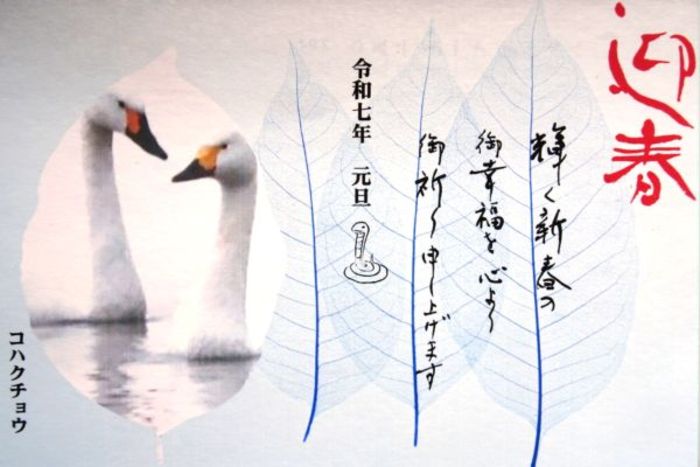 迎春
輝く新春の
御幸福を心より
御祈り申し上げます
令和七年 元旦
コハクチョウ